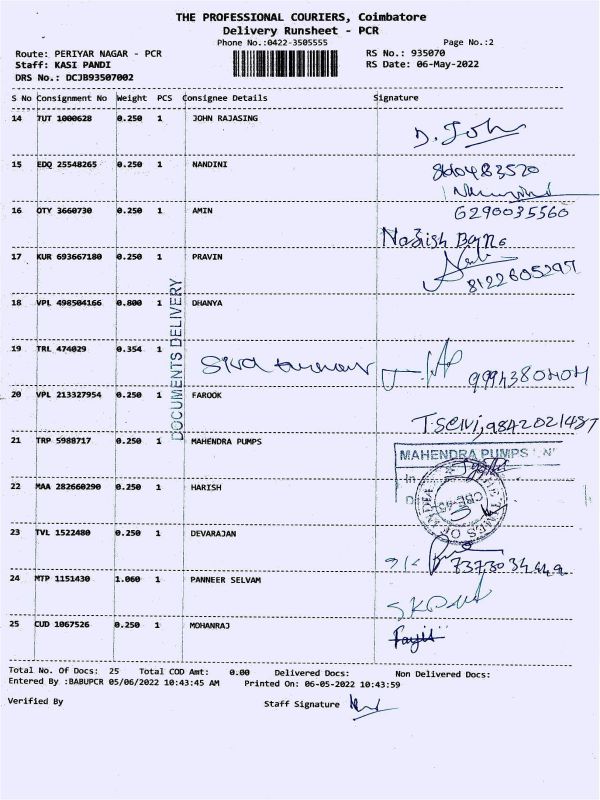 THE PROFESSIONAL COURIERS, Coimbatore
Delivery Runsheet - PCR
Phone No.:0422-3505555 Page No.:2
Route: PERIYAR NAGAR - PCR RS No.: 935070
Staff: KASI PANDI RS Date: 06-May-2022
DRS No.: DCJB93507002
S No Consignment No Weight PCS Consignee Details Signature
14 TUT 1000628 0.250 1 JOHN RAJASING
D. Joh
15 EDQ 25548265 0.250 1 NANDINI
16 OTY 3660730 0.250 1 AMIN 6290035560
17 KUR 693667180 0.250 1 PRAVIN
8122605297
18 VPL 498504166 0.800 1 DHANYA
DOCUMENTS DELIVERY
19 TRL 474029 0.354 1
20 VPL 213327954 0.250 1 FAROOK
21 TRP 5988717 0.250 1 MAHENDRA PUMPS
MAHENDRA PUMPS
22 MAA 282660290 0.250 1 HARISH
23 TVL 1522480 0.250 1 DEVARAJAN
24 MTP 1151430 1.060 1 PANNEER SELVAM
25 CUD 1067526 0.250 1 MOHANRAJ
Total No. Of Docs: 25 Total COD Amt: 0.00 Delivered Docs: Non Delivered Docs:
Entered By :BABUPCR 05/06/2022 10:43:45 AM Printed On: 06-05-2022 10:43:59
Verified By Staff Signature